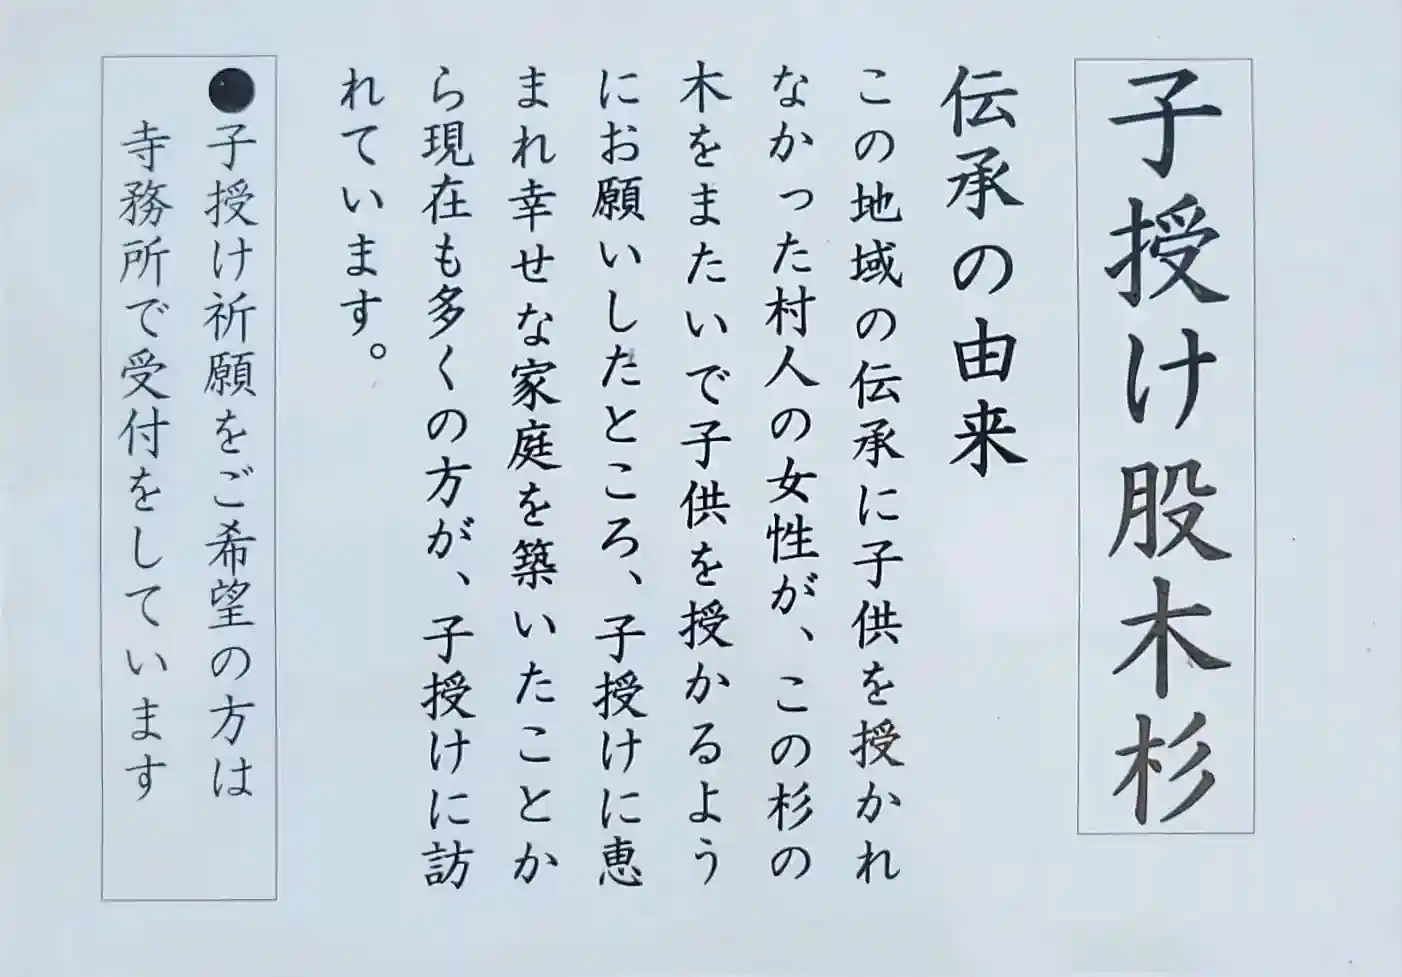 子授け股木杉
伝承の由来
この地域の伝承に子供を授かれ
なかった村人の女性が、この杉の
木をまたいで子供を授かるよう
にお願いしたところ、子授けに恵
まれ幸せな家庭を築いたことか
ら現在も多くの方が、子授けに訪
れています。
●子授け祈願をご希望の方は
寺務所で受付をしています